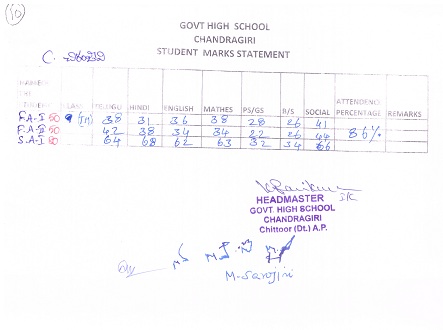 10
GOVT HIGH SCHOOL
CHANDRAGIRI
STUDENT MARKS STATEMENT
C. చిరంజీవి
NAME OF THE STUDENT CLASS TELUGU HINDI ENGLISH MATHES PS/GS B/S SOCIAL ATTENDENCE PERCENTAGE REMARKS
F.A-I 50 38 31 36 38 28 26 41
F.A-II 50 42 38 34 34 22 26 44 86%
S.A-I 64 68 62 63 32 34 66
HEADMASTER
GOVT. HIGH SCHOOL
CHANDRAGIRI
Chittoor (Dt.) A.P.
M. Sarojini